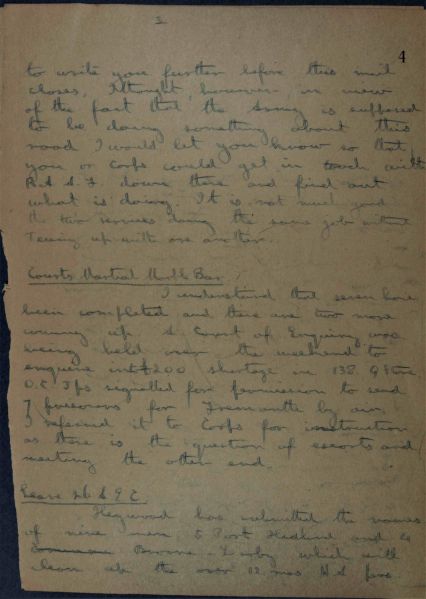 2
4
to write you further before this mail
closes. I thought, however, in view
of the fact that the Army is supposed
to be doing something about this
road I would let you know so that
you or Corps could get in touch with
R.A.A.F. down there and find out
what is doing. It is not much good
the two services doing the same job without
Teeing up with one another.
Courts Martial Marble Bar
I understand that seven have
been completed and there are two more
coming up. A Court of Enquiry was
being held over the weekend to
enquire into £200 shortage in 138
O.C. Tps signalled for permission to send
7 prisoners for Fremantle by air.
I referred it to Corps for instruction
as there is the question of escorts and
meeting the other end.
Leave
Heywood has submitted the names
of nine men, 5 Port Hedland and 4
Broome - Derby which will
clean up the over 12 mos